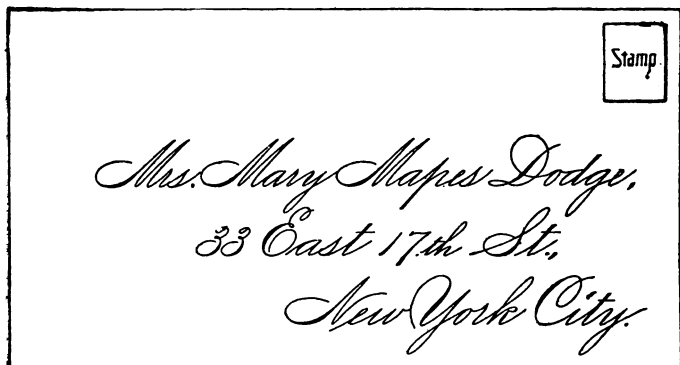 Stamp.
Mrs. Mary Mapes Dodge,
33 East 17th St.,
New York City.